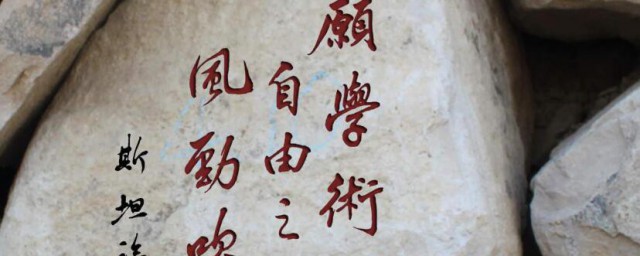 願學術
自由之
風勁吹
斯坦